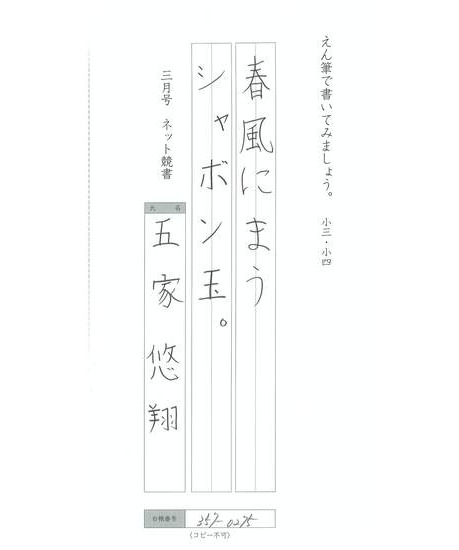 えん筆で書いてみましょう。 小三・小四
春風にまう
シャボン玉。
三月号 ネット競書
氏名
五家悠翔
台帳番号 357-0275
(コピー不可)